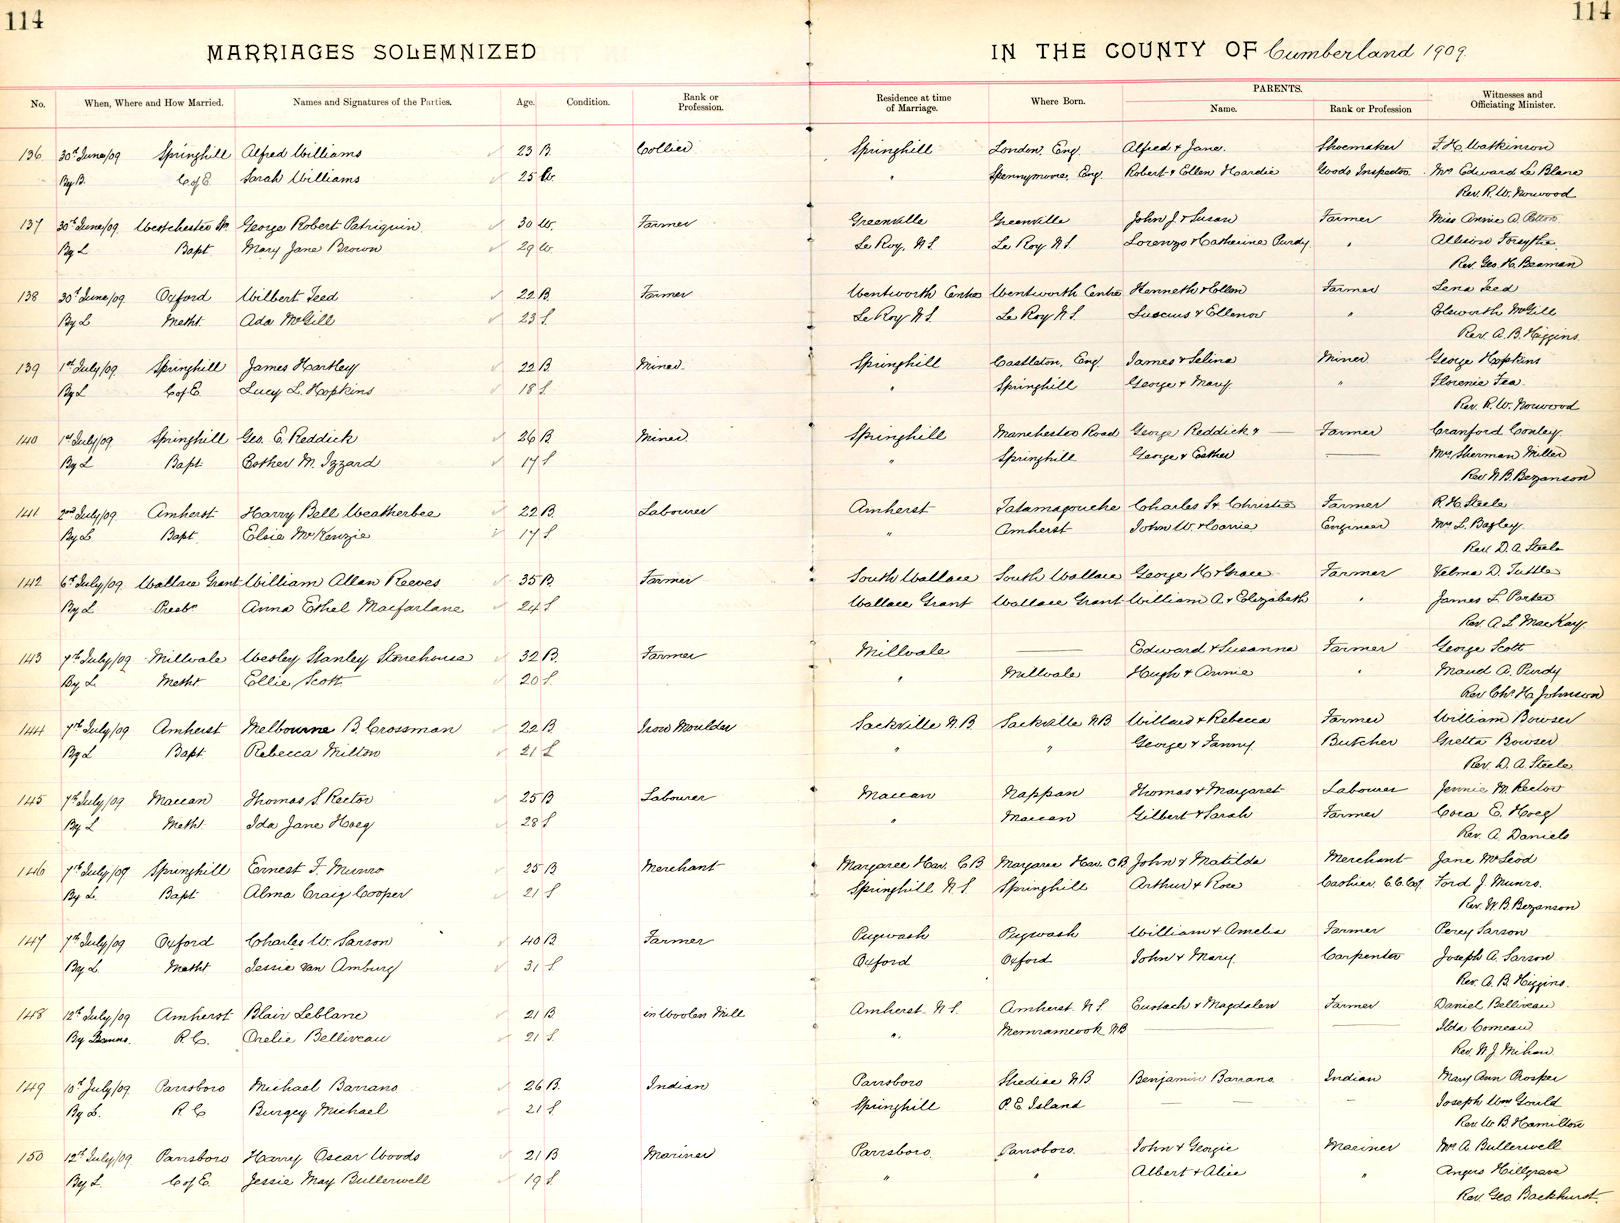 114
114
MARRIAGES SOLEMNIZED IN THE COUNTY OF Cumberland 1909.
No. When, Where and How Married. Names and Signatures of the Parties. Age. Condition. Rank or Profession. Residence at time of Marriage. Where Born. PARENTS. Name. Rank or Profession Witnesses and Officiating Minister.
136 30th June/09 Springhill Alfred Williams 23 B. Collier Springhill London, Eng. Alfred & Jane. Shoemaker F. H. Watkinson
By B. C of E. Sarah Williams 25 W. " Spennymoore, Eng. Robert & Ellen Hardie Goods Inspector Mrs Edward Le Blanc
Rev. R. W. Norwood
137 30th June/09 Westchester Stn George Robert Patriquin 30 W. Farmer Greenville Greenville John J & Susan Farmer Miss Annie A. Patton
By L Bapt. Mary Jane Brown 29 W. Le Roy, N.S. Le Roy N.S. Lorenzo & Catherine Purdy " Allison Forsythe
Rev. Geo. H. Beaman
138 30th June/09 Oxford Wilbert Teed 22 B. Farmer Wentworth Centre Wentworth Centre Kenneth & Ellen Farmer Lena Teed
By L Metht. Ada McGill 23 S. Le Roy N.S. Le Roy N.S. Luscius & Ellenor " Elsworth McGill
Rev. A. B. Higgins.
139 1st July/09 Springhill James Hartley 22 B Miner. Springhill Castleton, Eng James & Selina Miner George Hopkins
By L C of E. Lucy L. Hopkins 18 S. " Springhill George & Mary " Florenie Fea.
Rev. R. W. Norwood
140 1st July/09 Springhill Geo. E. Reddick 26 B. Miner Springhill Manchester Road George Reddick & — Farmer Cranford Conley
By L Bapt. Esther M. Izzard 17 S " Springhill George & Esther — Mrs. Sherman Miller
Rev. N. B. Bezanson
141 2nd July/09 Amherst Harry Bell Weatherbee 22 B. Labourer Amherst Tatamagouche Charles S. & Christie Farmer R. H. Steele
By L Bapt. Elsie McKenzie 17 S " Amherst John W. & Carrie Engineer Mrs L. Bagley.
Rev. D. A. Steele
142 6th July/09 Wallace Grant William Allan Reeves 35 B. Farmer South Wallace South Wallace George H & Grace Farmer Velma D. Tuttle
By L Presbn Anna Ethel Macfarlane 24 S Wallace Grant Wallace Grant William A. & Elizabeth " James L. Porter
Rev. A. L. MacKay.
143 7th July/09 Millvale Wesley Stanley Stonehouse 32 B. Farmer Millvale — Edward & Susanna Farmer George Scott
By L. Metht Ellie Scott 20 S. " Millvale Hugh & Annie " Maud A. Purdy
Rev. Chs. H. Johnson
144 7th July/09 Amherst Melbourne B. Crossman 22 B. Iron Moulder Sackville N.B. Sackville NB Willard & Rebecca Farmer William Bowser
By L Bapt. Rebecca Milton 21 S " " George & Fanny Butcher Gretta Bowser
Rev. D. A. Steele.
145 7th July/09 Maccan Thomas S. Rector 25 B Labourer Maccan Nappan Thomas & Margaret Labourer Jennie M. Rector
By L Metht. Ida Jane Hoeg 28 S " Maccan Gilbert & Sarah Farmer Cora E. Hoeg
Rev. A. Daniels
146 7th July/09 Springhill Ernest F. Munro 25 B Merchant Margaree Har. C B Margaree Har. C B John & Matilda Merchant Jane McLeod
By L. Bapt Alma Craig Cooper 21 S Springhill N.S. Springhill Arthur & Rose Cashier C.C. Coy. Ford J. Munro.
Rev. N. B. Bezanson
147 7th July/09 Oxford Charles W. Sarson 40 B. Farmer Pugwash Pugwash William & Amelia Farmer Percy Sarson
By L. Metht Jessie van Amburg 31 S Oxford Oxford John & Mary. Carpenter Joseph A. Sarson
Rev. A. B. Higgins.
148 12th July/09 Amherst Blair Leblanc 21 B in Woolen Mill Amherst N.S. Amherst N.S. Eustach & Magdalen Farmer Daniel Belliveau
By Banns. R C. Orelie Belliveau 21 S. " Memramcook NB — — Ilda Comeau
Rev. N J Mihan
149 10th July/09 Parrsboro Michael Barrano 26 B. Indian Parrsboro Shediac NB. Benjamin Barrano Indian Mary Ann Prosper
By L. R C Burgey Michael 21 S. Springhill P.E. Island — — — Joseph Wm Gould
Rev. W. B. Hamilton
150 12th July/09 Parrsboro Harry Oscar Woods 21 B Mariner Parrsboro. Parrsboro. John & Georgie Mariner Mrs A. Butterwell
By L. C of E. Jessie May Butterwell 19 S. " " Albert & Alice " Angus Hillgrave
Rev. Geo. Backhurst.